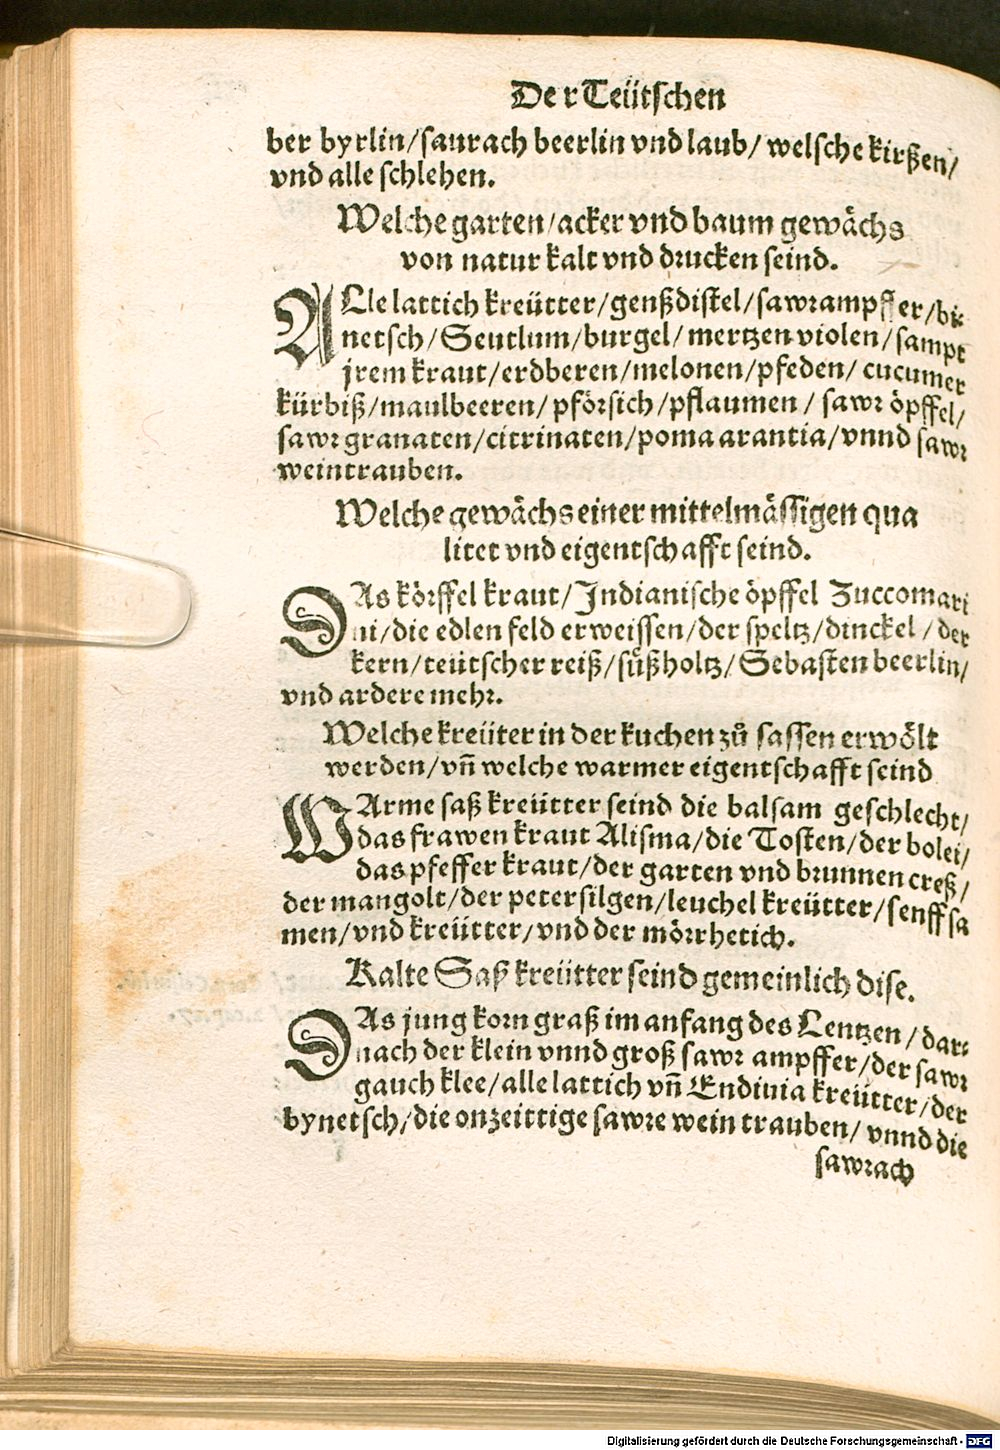 Der Teütschen
ber byrlin/saurach beerlin vnd laub/ welsche kirßen/
vnd alle schlehen.
Welche garten/acker vnd baum gewächs
von natur kalt vnd drucken seind.
ALle lattich kreütter/genßdistel/sawrampffer/bi⸗
netsch/Seutlum/burgel/mertzen violen/sampt
jrem kraut/erdberen/melonen/pfeden/ cucumer
kürbiß/maulbeeren/pförsich/pflaumen/ sawr öpffel/
sawr granaten/citrinaten/poma arantia/vnnd sawr
weintrauben.
Welche gewächs einer mittelmässigen qua
litet vnd eigentschafft seind.
DAs körffel kraut/Indianische öpffel Zuccomari
ni/die edlen feld erweissen/der speltz/dinckel/der
kern/teütscher reiß/süßholtz/Sebasten beerlin/
vnd ardere mehr.
Welche kreüter in der kuchen zů sassen erwölt
werden/vñ welche warmer eigentschafft seind
WArme saß kreütter seind die balsam geschlecht/
das frawen kraut Alisma/die Tosten/der bolei/
das pfeffer kraut/der garten vnd brunnen creß/
der mangolt/der petersilgen/leuchel kreütter/senff sa
men/vnd kreütter/vnd der mörrhetich.
Kalte Saß kreütter seind gemeinlich dise.
DAs jung korn graß im anfang des Lentzen/dar⸗
nach der klein vnnd groß sawr ampffer/der sawr
gauch klee/alle lattich vñ Endiuia kreütter/der
bynetsch/die onzeittige sawre wein trauben/ vnnd die
sawrach
Digitalisierung gefördert durch die Deutsche Forschungsgemeinschaft - DFG